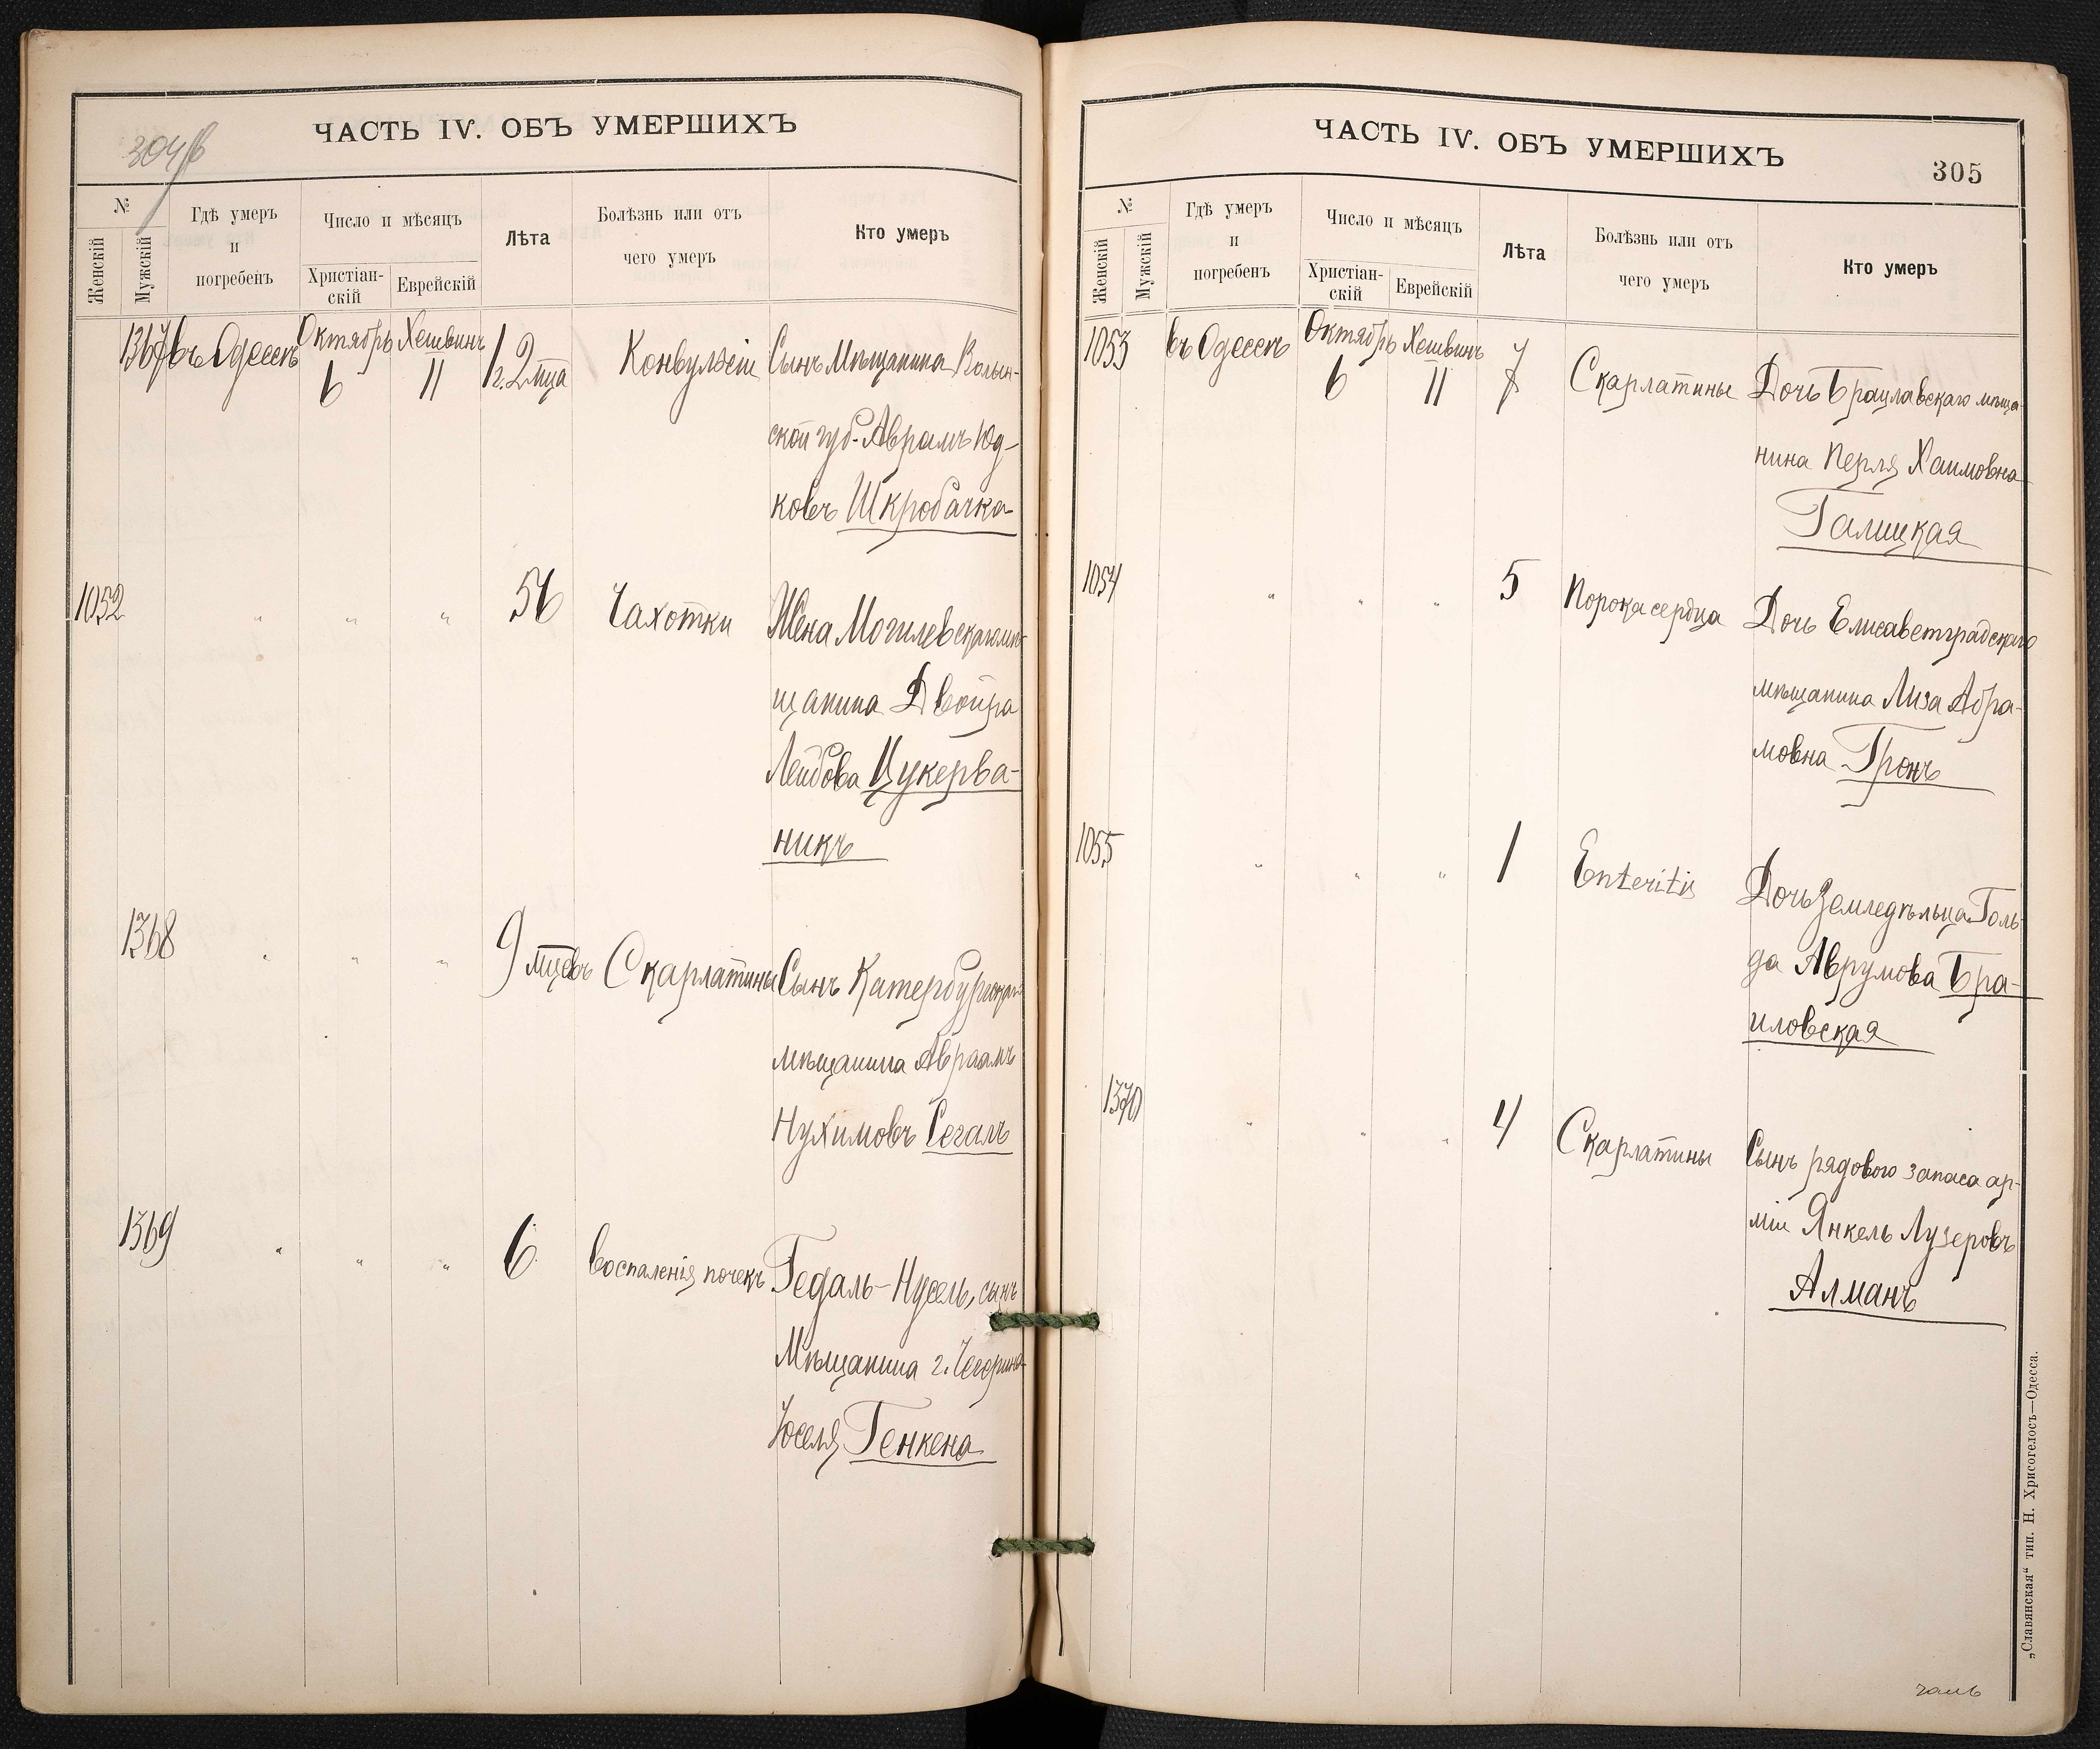 304/б
ЧАСТЬ IV. ОБЪ УМЕРШИХЪ
№
Женскій
Мужскій
Гдѣ умеръ
и
погребенъ
Число и мѣсяцъ
Христіан-
скій
Еврейскій
Лѣта
Болѣзнь или отъ
чего умеръ
Кто умеръ
1367 въ Одессѣ Октябрь Хешвинъ 1 г. 2 мца Конвульсіи Сынъ Мѣщанина Волын-
6 11
ской губ. Аврамъ Юд-
ковъ Шкробачка
1052 " " " 56 Чахотки Жена Могилевскаго мѣ-
щанина Двойра
Лейбова Цукерва-
никъ
1368 " " " 9 мцевъ Скарлатины Сынъ Катербургскаго
мѣщанина Авраамъ
Нухимовъ Сегалъ
1369 " " " 6 Воспаленія почекъ Гедаль-Нусель, сынъ
Мѣщанина г. Чегорина
Іоселя Генкена
ЧАСТЬ IV. ОБЪ УМЕРШИХЪ
305
№
Женскій
Мужскій
Гдѣ умеръ
и
погребенъ
Число и мѣсяцъ
Христіан-
скій
Еврейскій
Лѣта
Болѣзнь или отъ
чего умеръ
Кто умеръ
1053 въ Одессѣ Октябрь Хешвинъ 7 Скарлатины Дочь Брацлавскаго мѣща-
6 11
нина Перля Хаимовна
Галицкая
1054 " " " 5 Порока сердца Дочь Елисаветградскаго
мѣщанина Лиза Абра-
мовна Гронъ
1055 " " " 1 Enteritis Дочь Земледѣльца Голь-
да Аврумова Бра-
иловская
1370 " " " 4 Скарлатины Сынъ рядового запаса ар-
міи Янкель Лузеровъ
Алманъ
„Славянская“ тип. Н. Хрисогелосъ—Одесса.